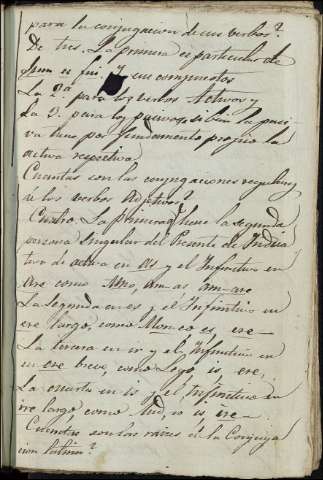 para la conjugacion de sus verbos?
De tres. La primera es particular de
Sum es fui. Y sus compuestos
La 2.ª para los verbos Activos y
La 3. para los pasivos, si bien la pasi-
va tiene por fundamento propio la
activa respectiva.
Cuantas son las conjugaciones regulares
de los verbos Adjetivos?
Cuatro. La primera tiene la segunda
persona singular del Presente de Indica
tivo de activa en As y el Infinitivo en
Are como Amo, am-as am-are
La segunda en es y el Infinitivo en
ere largo, como Mon-eo es, ere—
La tercera en is y el Infinitivo en
en ere breve, como Lego, is, ere,
La cuarta en is y el Infinitivo en
ire largo, como Aud, io is ire—
Cuantas son las raices de la Conjuga
cion latina?